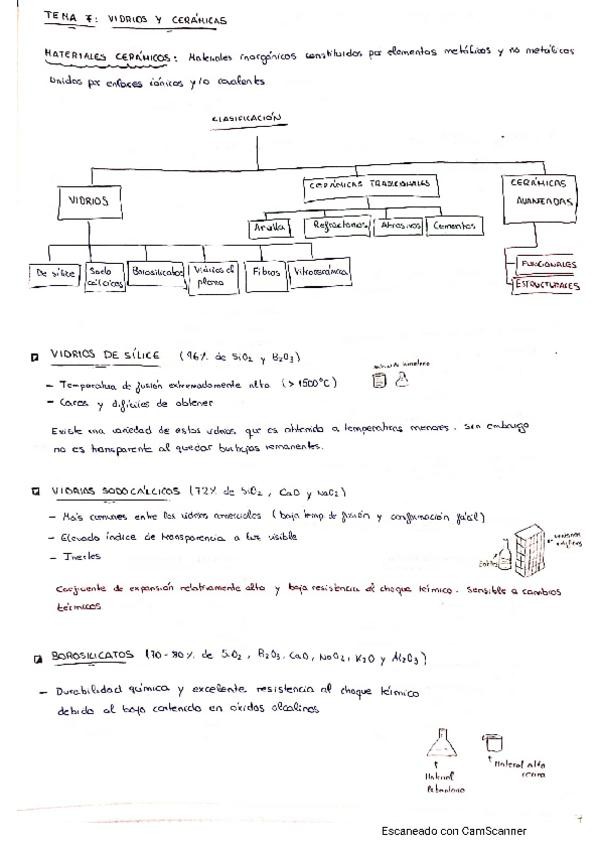 TEMA 7: VIDRIOS Y CERÁMICAS
MATERIALES CERÁMICOS: Materiales inorgánicos constituidos por elementos metálicos y no metálicos
unidos por enlaces iónicos y/o covalentes
CLASIFICACIÓN
VIDRIOS
CERÁMICAS TRADICIONALES
CERÁMICAS
AVANZADAS
Arcilla
Refractarios
Abrasivos
Cementos
De sílice
Sodo
cálcicos
Borosilicatos
Vidrios al
plomo
Fibras
Vitrocerámica
FUNCIONALES
ESTRUCTURALES
VIDRIOS DE SÍLICE (96% de SiO2 y B2O3)
- Temperatura de fusión extremadamente alta (> 1500°C)
- Caros y difíciles de obtener
Existe una variedad de estos vidrios que es obtenido a temperaturas menores. Sin embargo
no es transparente al quedar burbujas remanentes.
VIDRIOS SODOCÁLCICOS (72% de SiO2, CaO y
- Más comunes entre los vidrios comerciales (baja temp de fusión y conformación fácil)
- Elevado índice de transparencia a luz visible
- Inertes
Coeficiente de expansión relativamente alto y baja resistencia al choque térmico. Sensible a cambios
térmicos
BOROSILICATOS (70-80% de SiO2, B2O3, CaO, K2O y Al2O3)
- Durabilidad química y excelente resistencia al choque térmico
debido al bajo contenido en óxidos alcalinos
Material
Material alta
7
Escaneado con CamScanner